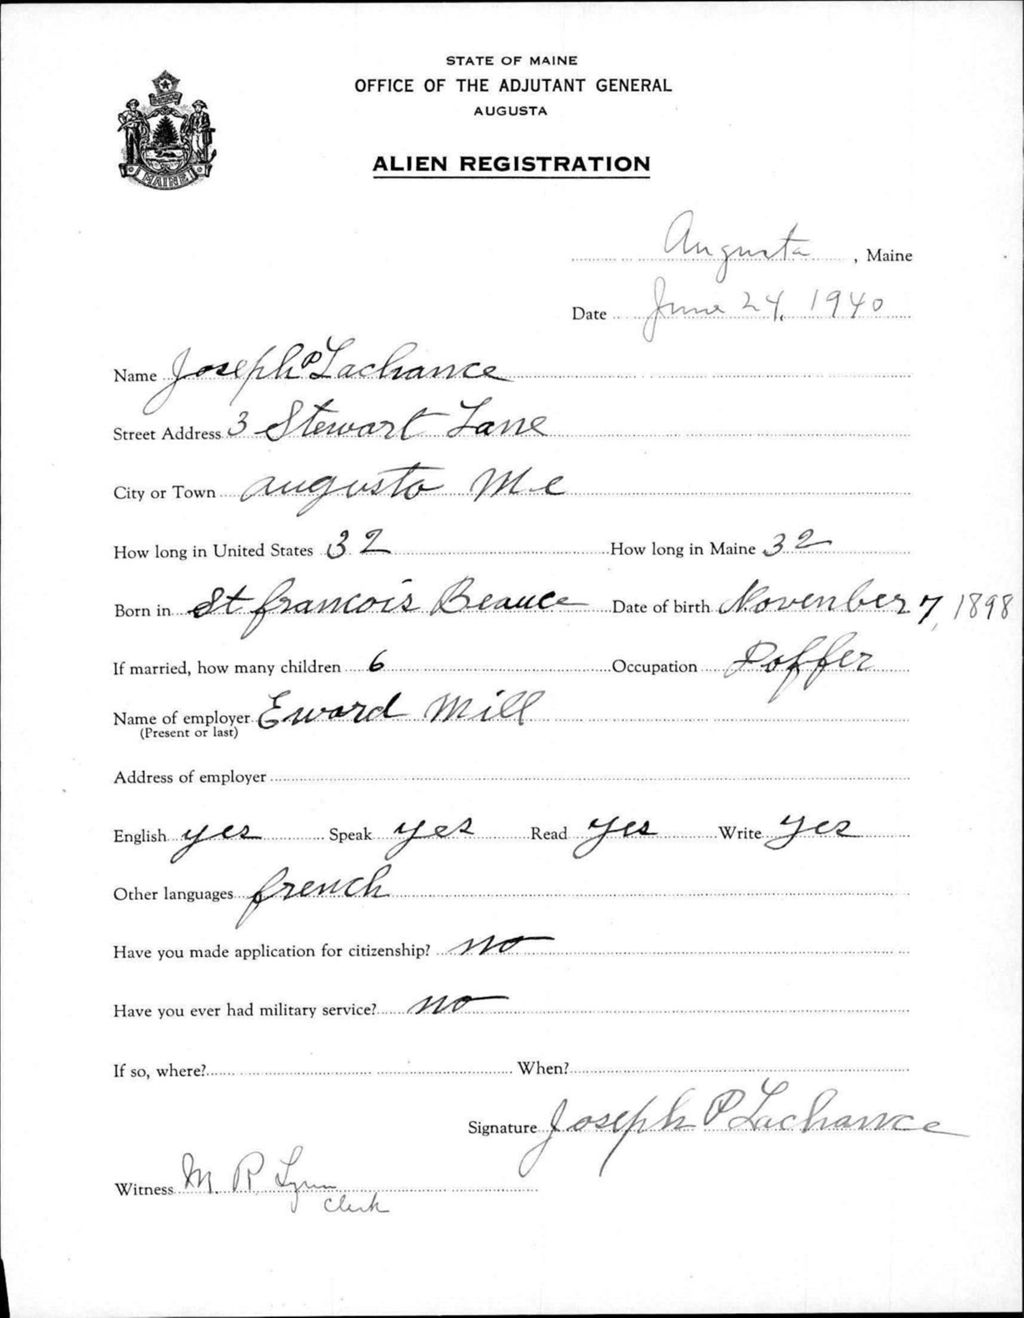 STATE OF MAINE
OFFICE OF THE ADJUTANT GENERAL
AUGUSTA
ALIEN REGISTRATION
MAINE
Augusta, Maine
Date June 24, 1940
Name Joseph P Lachance
Street Address 3 Stewart Lane
City or Town augusta Me
How long in United States 32 How long in Maine 32
Born in St francois Beauce Date of birth Novenber 7, 1898
If married, how many children 6 Occupation Doffer
Name of employer Eward Mill
(Present or last)
Address of employer
English yes Speak yes Read yes Write yes
Other languages french
Have you made application for citizenship? no
Have you ever had military service? no
If so, where? When?
Signature Joseph P Lachance
Witness M. R. Lynn
Clerk